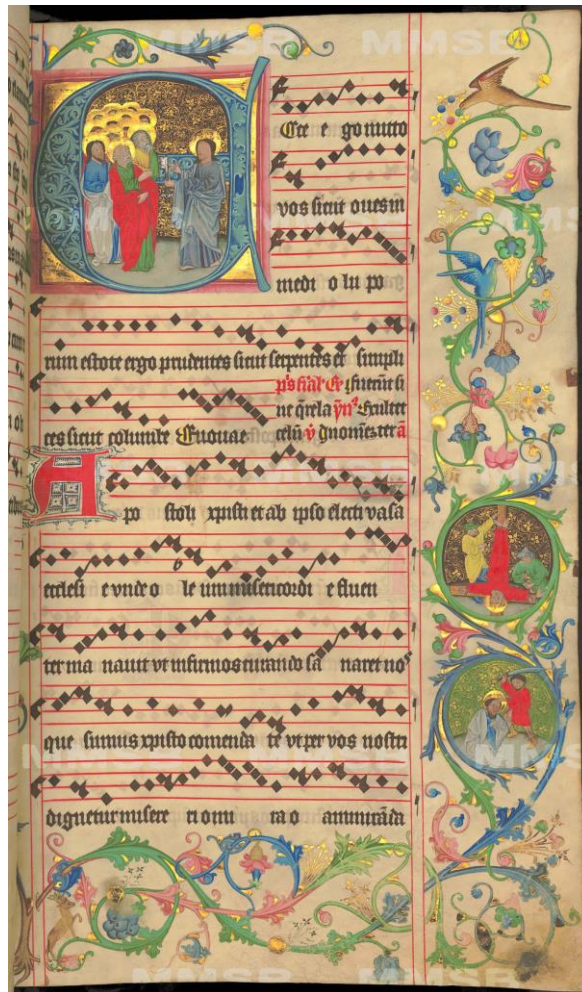 MMSB
ECce e go mitto
vos sicut oues in
medi o lu po
rum estote ergo prudentes sicut serpentes et simpli
ces sicut columbe Euouae
ne q̄rela Exultet
celū
A po stoli xpisti et ab ipso electi va sa
ecclesi e vnde o le um misericordi e fluen
ter ma nauit vt infirmos curando sa naret nos
que sumus xpisto comenda te vt per vos nostri
dignetur misere ri o mi ra o ammirāda